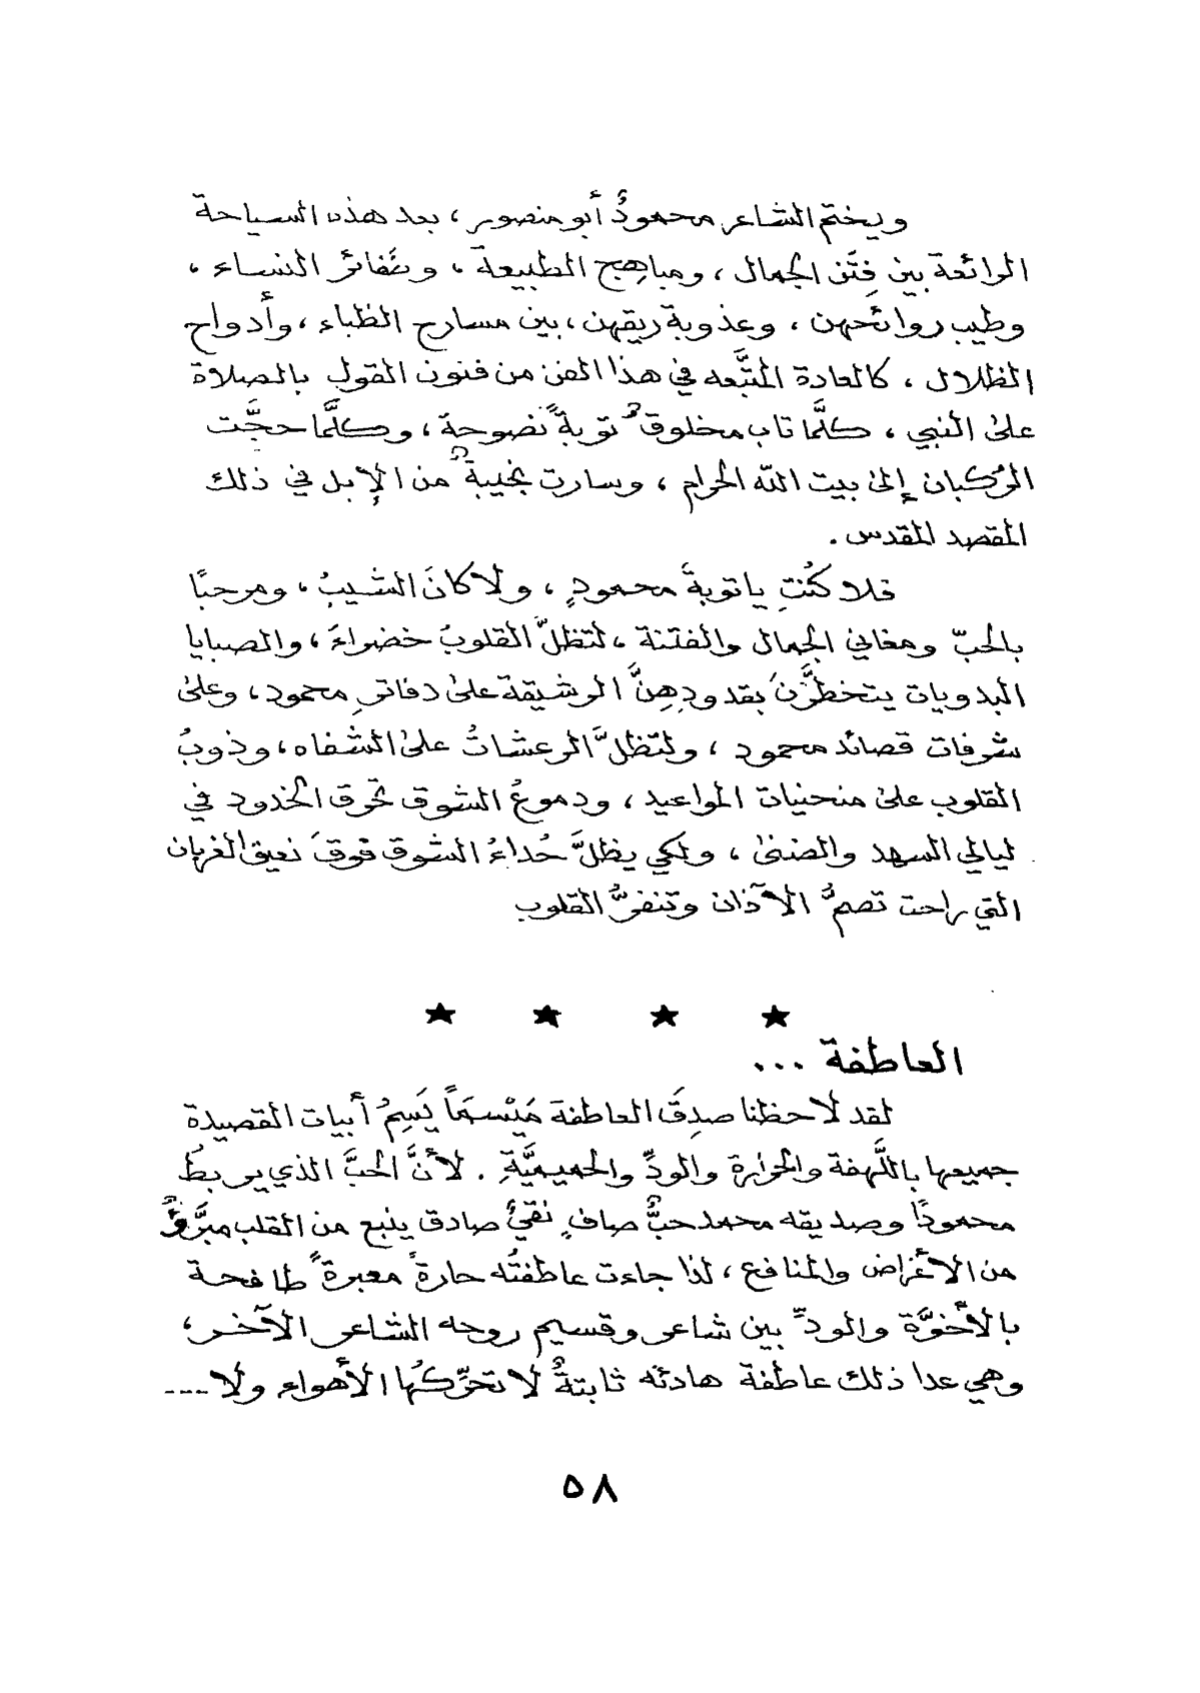 ويختم الشاعر محمودُ أبو منصور ، بعد هذه السياحة
الرائعة بين فِتَن الجمال ، ومباهِج الطبيعة ، وضَفائر النساء ،
وطيب روائحهن ، وعذوبة ريقهن ، بين مسارح الظباء ، وأدواح
الظلال ، كالعادة المتَّبعه في هذا الفن من فنون القول بالصلاة
على النبي ، كلَّما تاب مخلوقٌ توبةً نصوحة ، وكلَّما حجَّت
الرُكبان إلى بيت الله الحرام ، وسارت نجيبةٌ من الإبل في ذلك
المقصد المقدس .
فلا كُنتِ يا توبةَ محمودٍ ، ولا كانَ الشيبُ ، ومرحبًا
بالحبّ ومغاني الجمال والفتنة ، لتظلَّ القلوبُ خضراءَ ، والصبايا
البدويات يتخطرَّنَ بقدودِهِنَّ الرشيقة على دفاترِ محمود ، وعلى
شرفات قصائد محمود ، ولتظلَّ الرعشاتُ على الشفاه ، وذوبُ
القلوب على منحنيات المواعيد ، ودموعُ الشوق تحرق الخدود في
ليالي السهد والضنى ، ولكي يظلَّ حُداءُ الشوق فوقَ نعيق الغربان
التي راحت تصمُّ الآذان وتنفرُّ القلوب
★ ★ ★ ★
العاطفة ...
لقد لاحظنا صدِقَ العاطفة مَيْسَماً يَسِمُ أبيات القصيدة
جميعها باللَّهفة والحرارة والودِّ والحميميَّةِ . لأنَّ الحبَّ الذي يربطُ
محمودًا وصديقه محمد حبٌّ صافٍ نقيٌّ صادق ينبع من القلب مبرَّؤٌ
من الأغراض والمنافع ، لذا جاءت عاطفتُه حارةً معبرةً طافحة
بالأخوَّة والودِّ بين شاعر وقسيم روحه الشاعر الآخر ،
وهي عدا ذلك عاطفة هادئه ثابتةٌ لا تحرِّكُها الأهواء ولا ....
٥٨